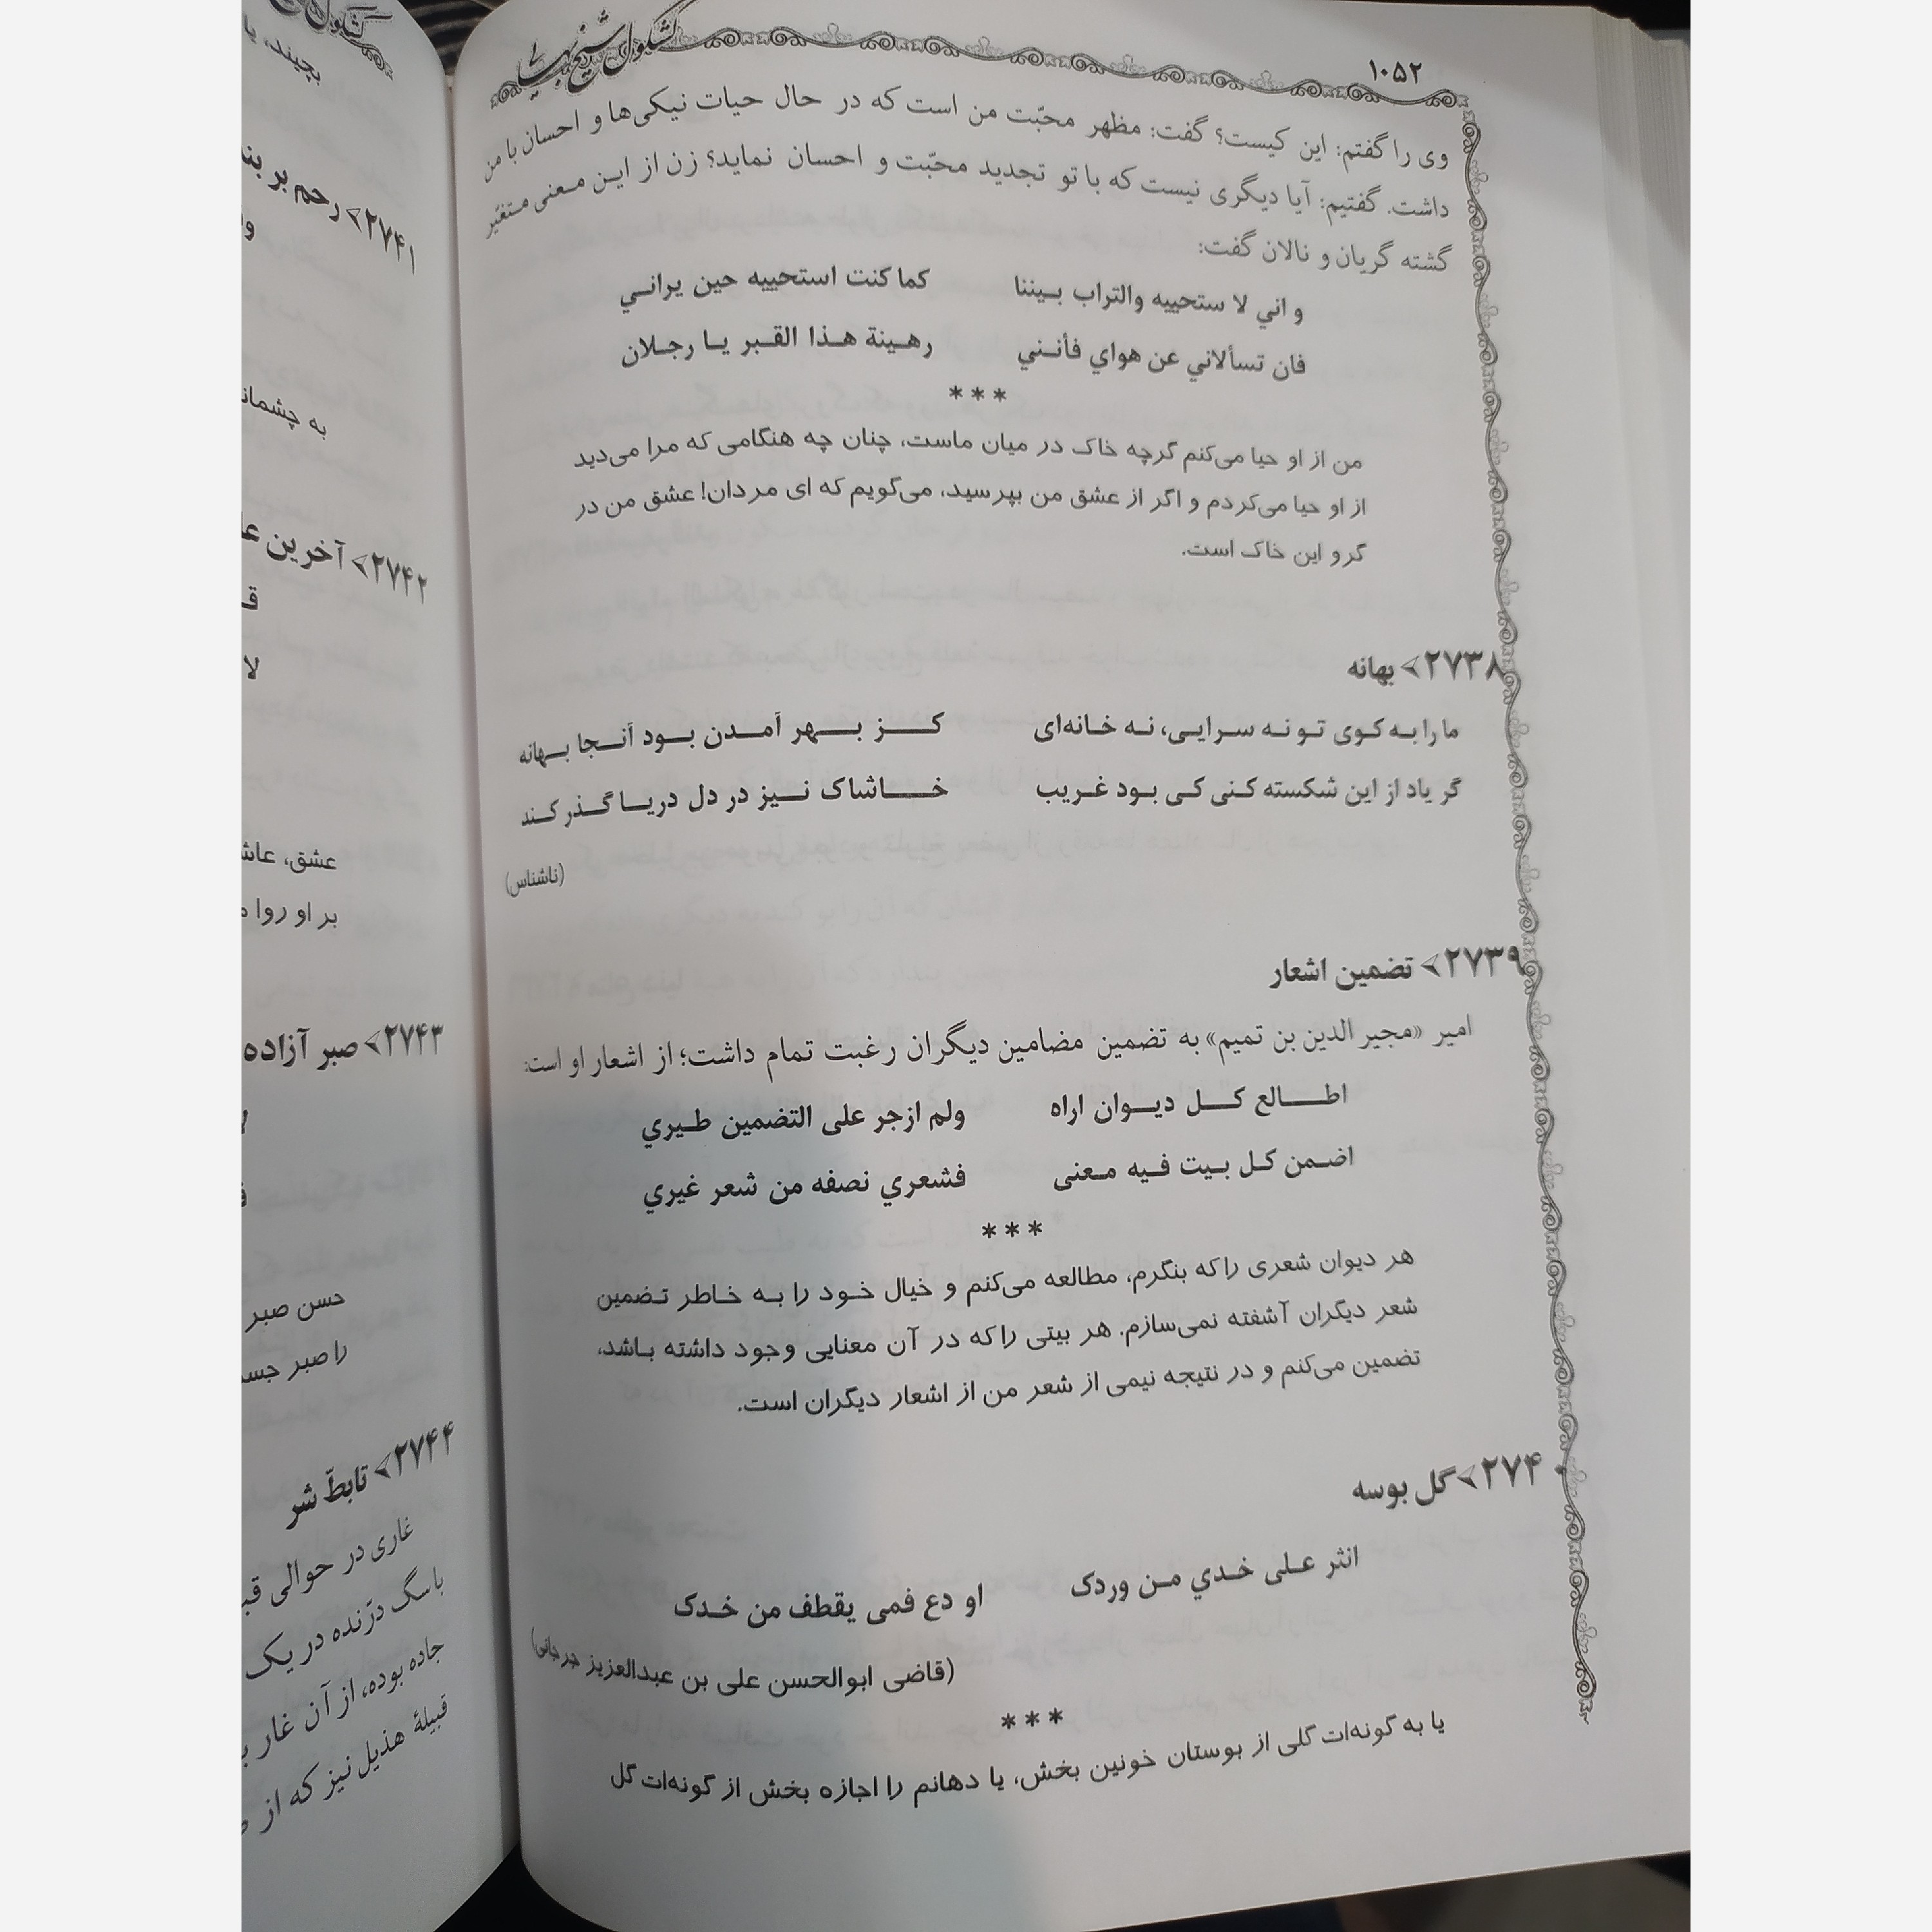 ۱۰۵۲
کشکول شیخ بهایی
وی را گفتم: این کیست؟ گفت: مظهر محبّت من است که در حال حیات نیکی‌ها و احسان با من
داشت. گفتیم: آیا دیگری نیست که با تو تجدید محبّت و احسان نماید؟ زن از این معنی متغیّر
گشته گریان و نالان گفت:
و اني لا ستحييه والتراب بيننا کما کنت استحييه حين يراني
فان تسألاني عن هواي فأنني رهينة هذا القبر يا رجلان
***
من از او حیا می‌کنم گرچه خاک در میان ماست، چنان چه هنگامی که مرا می‌دید
از او حیا می‌کردم و اگر از عشق من بپرسید، می‌گویم که ای مردان! عشق من در
گرو این خاک است.
۲۷۳۸> بهانه
ما را به کوی تو نه سرایی، نه خانه‌ای کز بهر آمدن بود آنجا بهانه
گر یاد از این شکسته کنی کی بود غریب خاشاک نیز در دل دریا گذر کند
(ناشناس)
۲۷۳۹> تضمین اشعار
امیر «مجیر الدین بن تمیم» به تضمین مضامین دیگران رغبت تمام داشت؛ از اشعار او است:
اطالع کل ديوان اراه ولم ازجر على التضمين طيري
اضمن کل بيت فيه معنى فشعري نصفه من شعر غيري
***
هر دیوان شعری را که بنگرم، مطالعه می‌کنم و خیال خود را به خاطر تضمین
شعر دیگران آشفته نمی‌سازم. هر بیتی را که در آن معنایی وجود داشته باشد،
تضمین می‌کنم و در نتیجه نیمی از شعر من از اشعار دیگران است.
۲۷۴۰> گل بوسه
انثر على خدي من وردک او دع فمی يقطف من خدک
(قاضی ابوالحسن علی بن عبدالعزیز جرجانی)
***
یا به گونه‌ات گلی از بوستان خونین بخش، یا دهانم را اجازه بخش از گونه‌ات گل
بچیند، یا
۲۷۴۱> رحم بر
به
۲۷۴۲> آخرین
لا
عشق،
بر او روا
۲۷۴۳> صبر آزاده
حسن صبر
را صبر
۲۷۴۴> تابطّ شر
غاری در حوالی
با سگ درّنده در یک
جاده بوده، از آن غار
قبیلهٔ هذیل نیز که از